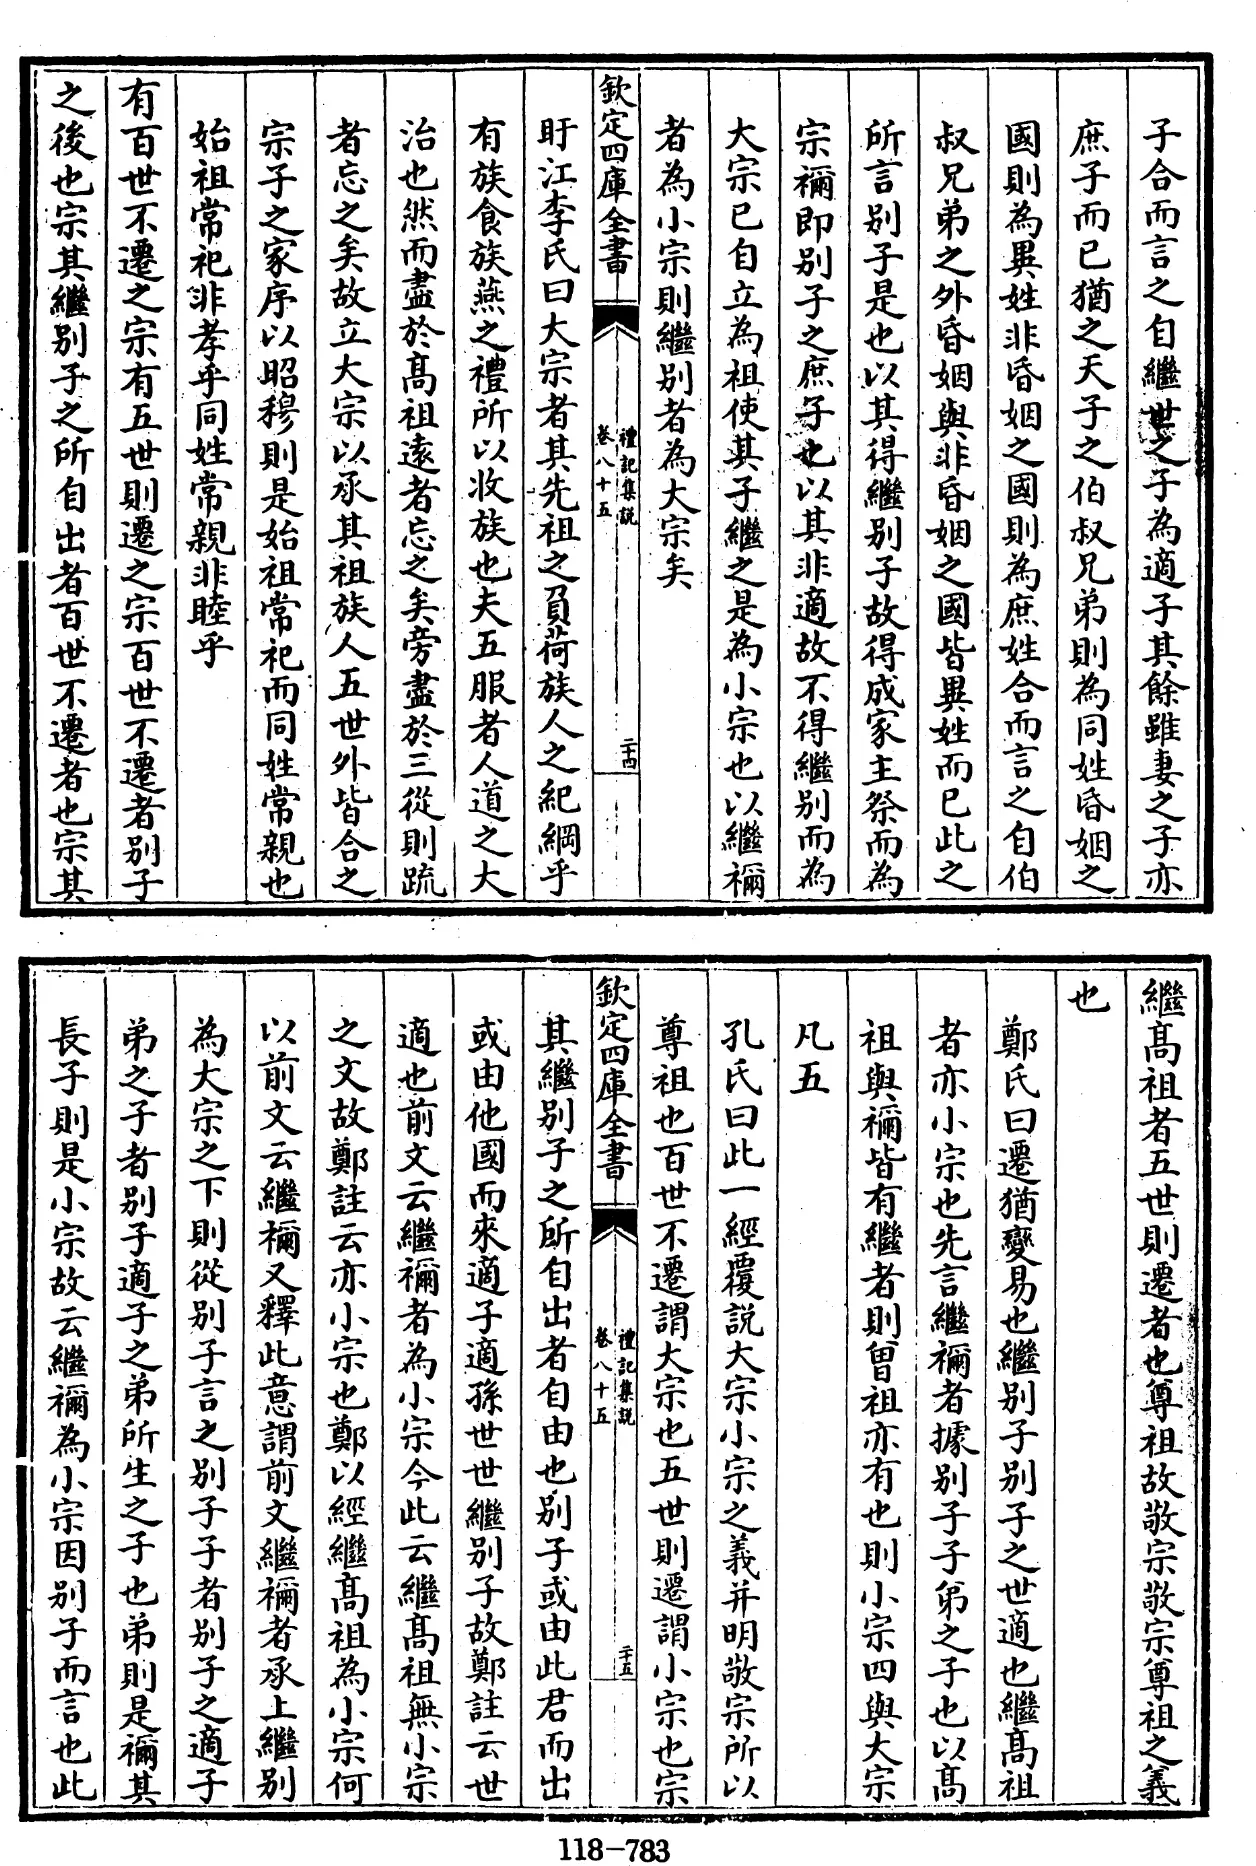 子合而言之自繼世之子為適子其餘雖妻之子亦
庶子而已猶之天子之伯叔兄弟則為同姓昏姻之
國則為異姓非昏姻之國則為庶姓合而言之自伯
叔兄弟之外昏姻與非昏姻之國皆異姓而已此之
所言别子是也以其得繼别子故得成家主祭而為
宗禰即别子之庶子也以其非適故不得繼别而為
大宗已自立為祖使其子繼之是為小宗也以繼禰
者為小宗則繼别者為大宗矣
欽定四庫全書
禮記集説
卷八十五
二十四
盱江李氏曰大宗者其先祖之負荷族人之紀綱乎
有族食族燕之禮所以收族也夫五服者人道之大
治也然而盡於髙祖遠者忘之矣旁盡於三從則疏
者忘之矣故立大宗以承其祖族人五世外皆合之
宗子之家序以昭穆則是始祖常祀而同姓常親也
始祖常祀非孝乎同姓常親非睦乎
有百世不遷之宗有五世則遷之宗百世不遷者别子
之後也宗其繼别子之所自出者百世不遷者也宗其
繼髙祖者五世則遷者也尊祖故敬宗敬宗尊祖之義
也
鄭氏曰遷猶變易也繼别子别子之世適也繼髙祖
者亦小宗也先言繼禰者據别子子弟之子也以髙
祖與禰皆有繼者則曾祖亦有也則小宗四與大宗
凡五
孔氏曰此一經覆説大宗小宗之義并明敬宗所以
尊祖也百世不遷謂大宗也五世則遷謂小宗也宗
欽定四庫全書
禮記集説
卷八十五
二十五
其繼别子之所自出者自由也别子或由此君而出
或由他國而來適子適孫世世繼别子故鄭註云世
適也前文云繼禰者為小宗今此云繼髙祖無小宗
之文故鄭註云亦小宗也鄭以經繼髙祖為小宗何
以前文云繼禰又釋此意謂前文繼禰者承上繼别
為大宗之下則從别子言之别子子者别子之適子
弟之子者别子適子之弟所生之子也弟則是禰其
長子則是小宗故云繼禰為小宗因别子而言也此
118-783